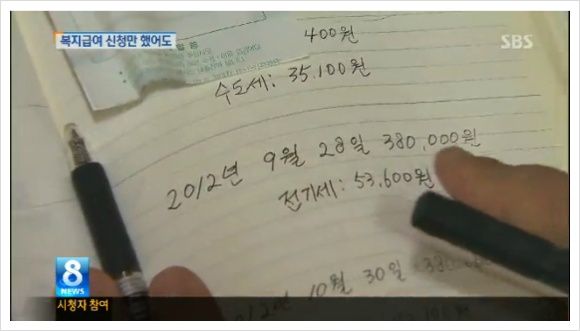 복지급여 신청만 했어도
SBS
400원
수도세: 35,100원
2012년 9월 28일 380,000원
전기세: 53,600원
10월 30일
8
NEWS
시청자 참여